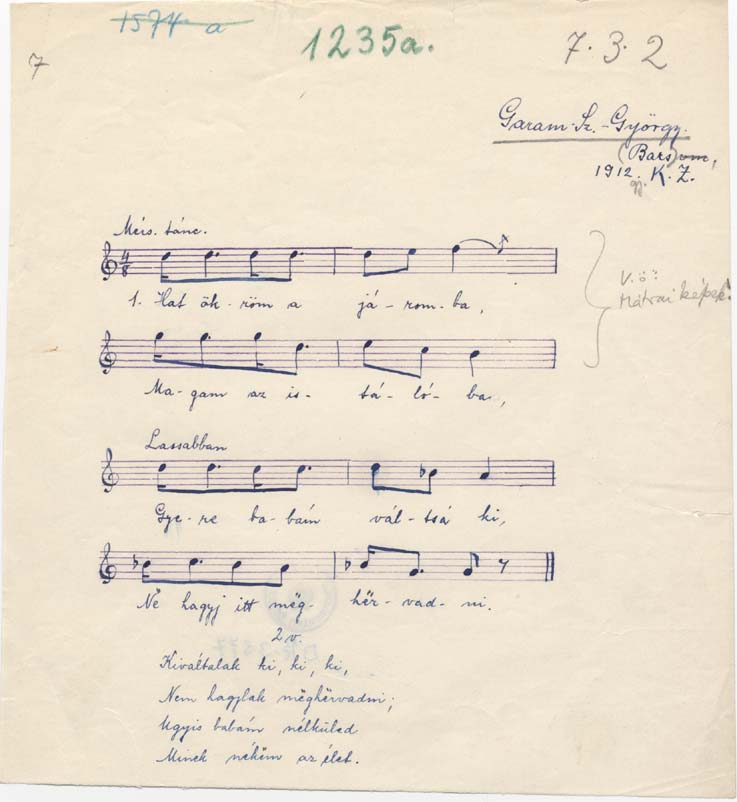 1574 a
1235a.
7. 3. 2
7
Garam-Sz.-György.
(Bars) vm,
1912. K. Z.
gy.
Mérs. tánc.
4/8
1. Hat ök-röm a já-rom-ba,
V.ö:
Mátrai képek.
Ma-gam az is-tá-ló-ba,
Lassabban
Gye-re ba-bám vál-tsá ki,
Ne hagyj itt mëg-hër-vad-ni.
2v.
Kiváltalak ki, ki, ki,
Nem hagylak mëghërvadni;
Ugyis babám nélküled
Minek nékëm az élet.